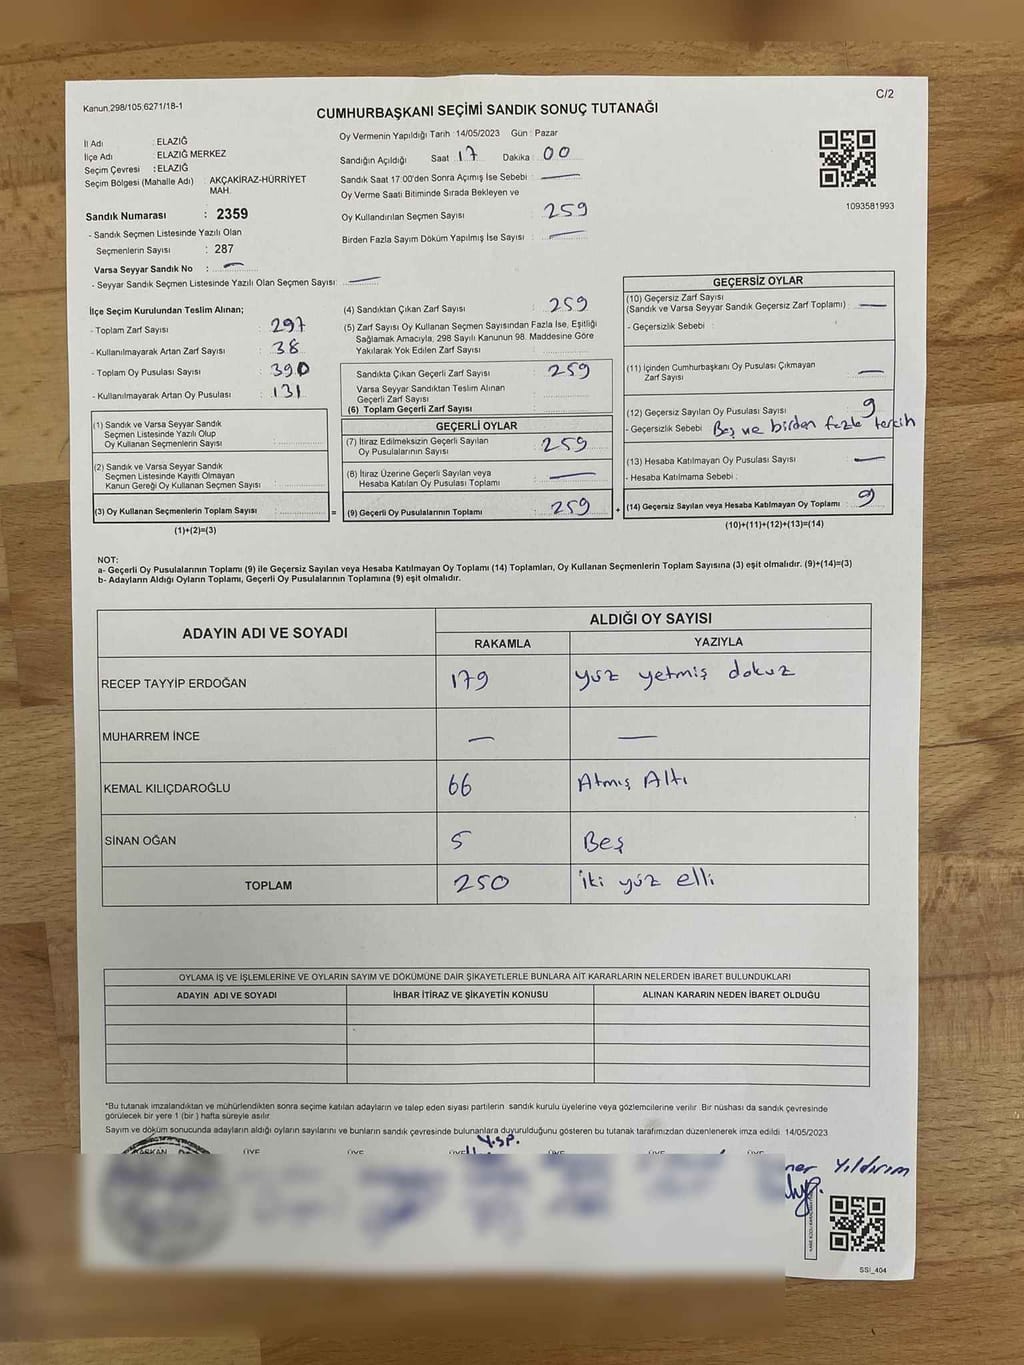 Kanun.298/105,6271/18-1
C/2
CUMHURBAŞKANI SEÇİMİ SANDIK SONUÇ TUTANAĞI
İl Adı : ELAZIĞ
İlçe Adı : ELAZIĞ MERKEZ
Seçim Çevresi : ELAZIĞ
Seçim Bölgesi (Mahalle Adı) : AKÇAKİRAZ-HÜRRİYET
MAH.
Sandık Numarası : 2359
- Sandık Seçmen Listesinde Yazılı Olan
Seçmenlerin Sayısı : 287
Varsa Seyyar Sandık No : —
- Seyyar Sandık Seçmen Listesinde Yazılı Olan Seçmen Sayısı: —
Oy Vermenin Yapıldığı Tarih : 14/05/2023 Gün : Pazar
Sandığın Açıldığı Saat 17 Dakika : 00
Sandık Saat 17:00'den Sonra Açımış İse Sebebi : —
Oy Verme Saati Bitiminde Sırada Bekleyen ve
Oy Kullandırılan Seçmen Sayısı : 259
Birden Fazla Sayım Döküm Yapılmış İse Sayısı : —
1093581993
İlçe Seçim Kurulundan Teslim Alınan;
- Toplam Zarf Sayısı : 297
- Kullanılmayarak Artan Zarf Sayısı : 38
- Toplam Oy Pusulası Sayısı : 390
- Kullanılmayarak Artan Oy Pusulası : 131
(1) Sandık ve Varsa Seyyar Sandık
Seçmen Listesinde Yazılı Olup
Oy Kullanan Seçmenlerin Sayısı :
(2) Sandık ve Varsa Seyyar Sandık
Seçmen Listesinde Kayıtlı Olmayan
Kanun Gereği Oy Kullanan Seçmen Sayısı :
(3) Oy Kullanan Seçmenlerin Toplam Sayısı :
(1)+(2)=(3)
(4) Sandıktan Çıkan Zarf Sayısı : 259
(5) Zarf Sayısı Oy Kullanan Seçmen Sayısından Fazla İse, Eşitliği
Sağlamak Amacıyla, 298 Sayılı Kanunun 98. Maddesine Göre
Yakılarak Yok Edilen Zarf Sayısı :
Sandıkta Çıkan Geçerli Zarf Sayısı : 259
Varsa Seyyar Sandıktan Teslim Alınan
Geçerli Zarf Sayısı :
(6) Toplam Geçerli Zarf Sayısı :
GEÇERLİ OYLAR
(7) İtiraz Edilmeksizin Geçerli Sayılan
Oy Pusulalarının Sayısı : 259
(8) İtiraz Üzerine Geçerli Sayılan veya
Hesaba Katılan Oy Pusulası Toplamı : —
= (9) Geçerli Oy Pusulalarının Toplamı : 259
GEÇERSİZ OYLAR
(10) Geçersiz Zarf Sayısı
(Sandık ve Varsa Seyyar Sandık Geçersiz Zarf Toplamı) : —
- Geçersizlik Sebebi :
(11) İçinden Cumhurbaşkanı Oy Pusulası Çıkmayan
Zarf Sayısı : —
(12) Geçersiz Sayılan Oy Pusulası Sayısı : 9
- Geçersizlik Sebebi : Boş ve birden fazla tercih
(13) Hesaba Katılmayan Oy Pusulası Sayısı : —
- Hesaba Katılmama Sebebi :
+ (14) Geçersiz Sayılan veya Hesaba Katılmayan Oy Toplamı : 9
(10)+(11)+(12)+(13)=(14)
NOT:
a- Geçerli Oy Pusulalarının Toplamı (9) ile Geçersiz Sayılan veya Hesaba Katılmayan Oy Toplamı (14) Toplamları, Oy Kullanan Seçmenlerin Toplam Sayısına (3) eşit olmalıdır. (9)+(14)=(3)
b- Adayların Aldığı Oyların Toplamı, Geçerli Oy Pusulalarının Toplamına (9) eşit olmalıdır.
ADAYIN ADI VE SOYADI
ALDIĞI OY SAYISI
RAKAMLA YAZIYLA
RECEP TAYYİP ERDOĞAN 179 yüz yetmiş dokuz
MUHARREM İNCE — —
KEMAL KILIÇDAROĞLU 66 Atmış Altı
SİNAN OĞAN 5 Beş
TOPLAM 250 iki yüz elli
OYLAMA İŞ VE İŞLEMLERİNE VE OYLARIN SAYIM VE DÖKÜMÜNE DAİR ŞİKAYETLERLE BUNLARA AİT KARARLARIN NELERDEN İBARET BULUNDUKLARI
ADAYIN ADI VE SOYADI İHBAR İTİRAZ VE ŞİKAYETİN KONUSU ALINAN KARARIN NEDEN İBARET OLDUĞU
*Bu tutanak imzalandıktan ve mühürlendikten sonra seçime katılan adayların ve talep eden siyasi partilerin sandık kurulu üyelerine veya gözlemcilerine verilir. Bir nüshası da sandık çevresinde
görülecek bir yere 1 (bir ) hafta süreyle asılır.
Sayım ve döküm sonucunda adayların aldığı oyların sayılarını ve bunların sandık çevresinde bulunanlara duyurulduğunu gösteren bu tutanak tarafımızdan düzenlenerek imza edildi. 14/05/2023
Y.S.P.
BAŞKAN ÜYE ÜYE ÜYE ÜYE ÜYE
Yıldırım
SSI_404